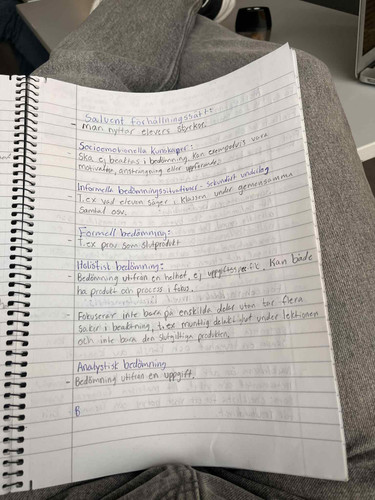 Salvent förhållningssätt:
- man nyttar elevers styrkor.
Socioemotionella kunskaper:
- Ska ej beaktas i bedömning. Kan exempelvis vara
motivation, ansträngning eller uppförande.
Informella bedömningssituationer - sekundärt underlag
- T.ex vad eleven säger i klassen under gemensamma
samtal osv.
Formell bedömning:
- T.ex prov som slutprodukt
Holistisk bedömning:
- Bedömning utifrån en helhet, ej uppgiften Kan både
ha produkt och process i fokus.
- Fokuserar inte bara på enskilda delar utan tar flera
saker i beaktning, t.ex muntlig delaktighet under lektionen
och inte bara den slutgiltiga produkten.
Analystisk bedömning
- Bedömning utifrån en uppgift.
B